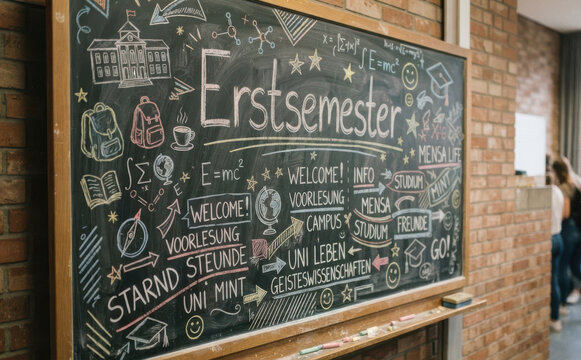 Erstsemester
E=mc²
MENSA LIFE
E=mc²
WELCOME!
INFO
STUDIUM
MINT
VORLESUNG
MENSA
WELCOME!
CAMPUS
STUDIUM
FREUNDE
VORLESUNG
UNI LEBEN
GO!
STARND STEUNDE
GEISTESWISSENSCHAFTEN
UNI MINT